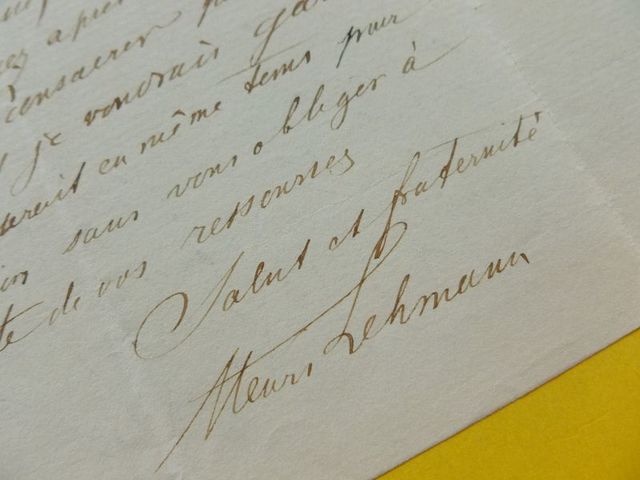 consacrer
je voudrais
en même tems pour
sans vous obliger à
de vos ressources
Salut et fraternité
Henri Lehmann